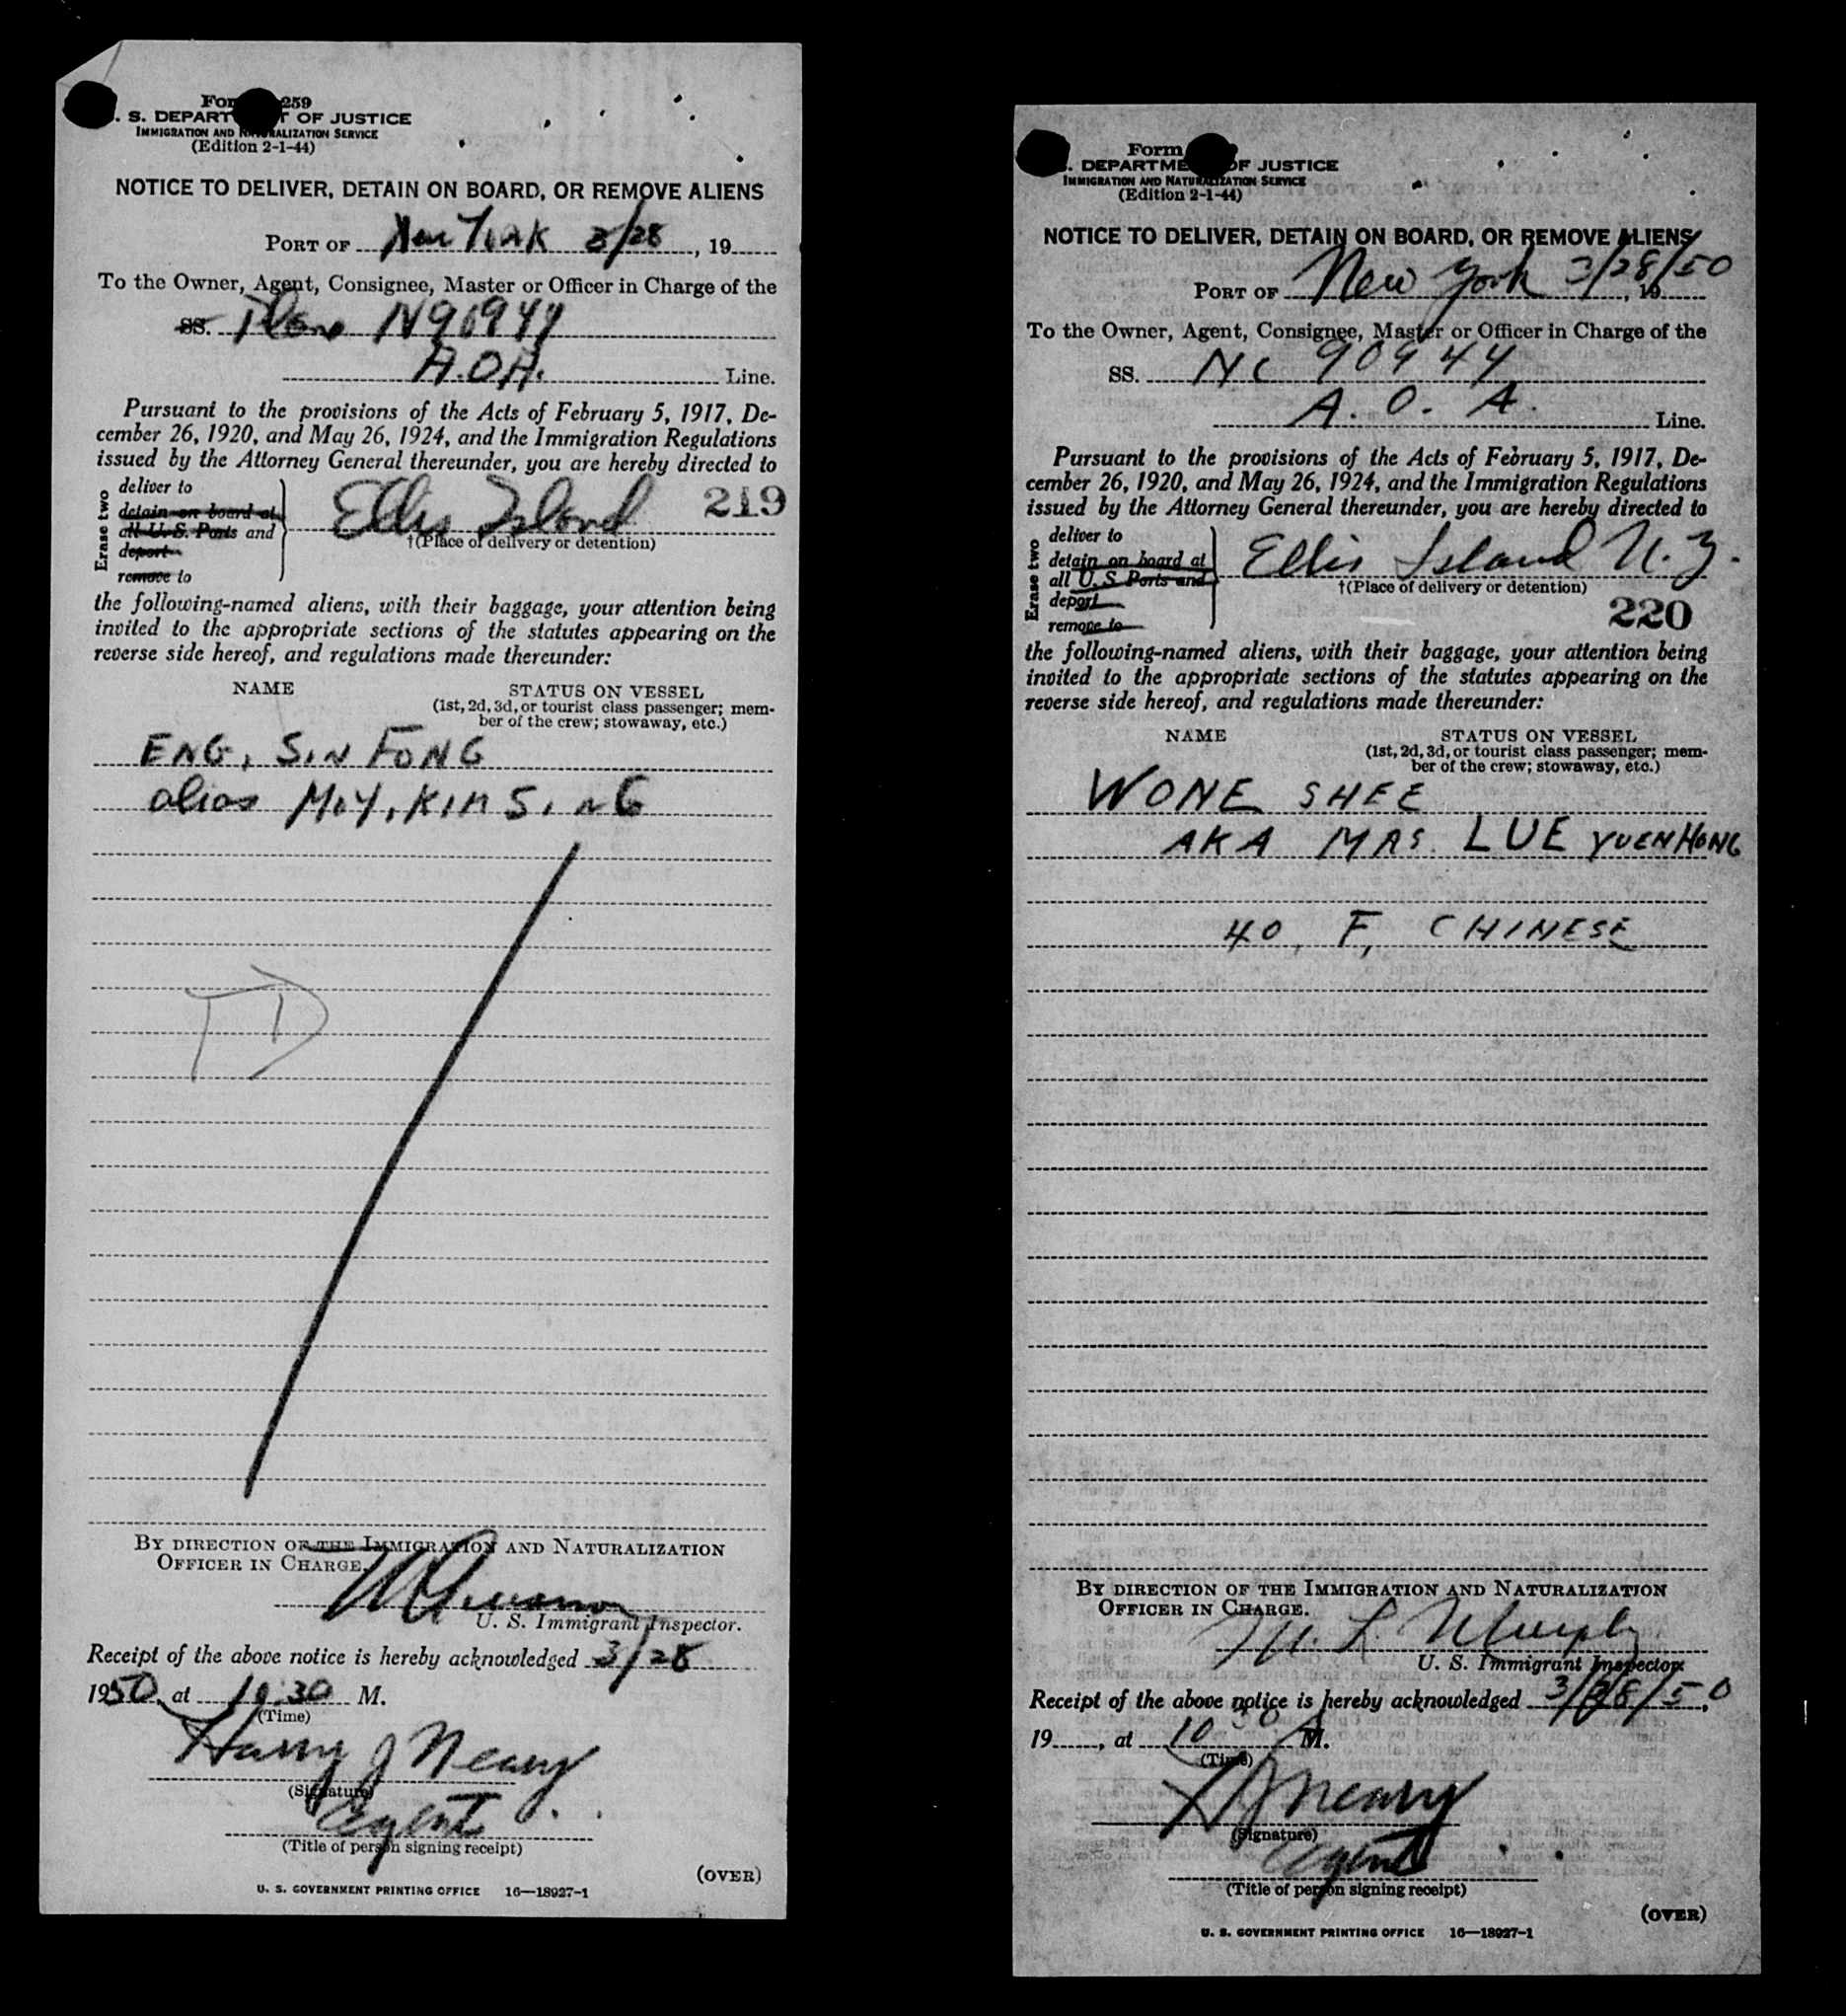 Form 259
. S. DEPARTMENT OF JUSTICE
IMMIGRATION AND NATURALIZATION SERVICE
(Edition 2-1-44)
NOTICE TO DELIVER, DETAIN ON BOARD, OR REMOVE ALIENS
PORT OF New York 3/28, 19
To the Owner, Agent, Consignee, Master or Officer in Charge of the
SS. Plane N90944
A.O.A. Line.
Pursuant to the provisions of the Acts of February 5, 1917, De-
cember 26, 1920, and May 26, 1924, and the Immigration Regulations
issued by the Attorney General thereunder, you are hereby directed to
Erase two
deliver to
detain on board at
all U. S. Ports and
deport
remove to
Ellis Island 219
†(Place of delivery or detention)
the following-named aliens, with their baggage, your attention being
invited to the appropriate sections of the statutes appearing on the
reverse side hereof, and regulations made thereunder:
NAME STATUS ON VESSEL
(1st, 2d, 3d, or tourist class passenger; mem-
ber of the crew; stowaway, etc.)
ENG, SIN FONG
alias MOY, KIM SING
TD
BY DIRECTION OF THE IMMIGRATION AND NATURALIZATION
OFFICER IN CHARGE.
U. S. Immigrant Inspector.
Receipt of the above notice is hereby acknowledged 3/28
1950, at 10:30 M.
(Time)
Harry J Neary
(Signature)
Agent
(Title of person signing receipt)
(OVER)
U. S. GOVERNMENT PRINTING OFFICE 16—18927-1
Form
. DEPARTMENT OF JUSTICE
IMMIGRATION AND NATURALIZATION SERVICE
(Edition 2-1-44)
NOTICE TO DELIVER, DETAIN ON BOARD, OR REMOVE ALIENS
PORT OF New York 3/28/50, 19
To the Owner, Agent, Consignee, Master or Officer in Charge of the
SS. NC 90944
A. O. A. Line.
Pursuant to the provisions of the Acts of February 5, 1917, De-
cember 26, 1920, and May 26, 1924, and the Immigration Regulations
issued by the Attorney General thereunder, you are hereby directed to
Erase two
deliver to
detain on board at
all U. S. Ports and
deport
remove to
Ellis Island N.Y.
†(Place of delivery or detention)
220
the following-named aliens, with their baggage, your attention being
invited to the appropriate sections of the statutes appearing on the
reverse side hereof, and regulations made thereunder:
NAME STATUS ON VESSEL
(1st, 2d, 3d, or tourist class passenger; mem-
ber of the crew; stowaway, etc.)
WONE SHEE
AKA MRS. LUE YUEN HONG
40, F, CHINESE
BY DIRECTION OF THE IMMIGRATION AND NATURALIZATION
OFFICER IN CHARGE.
M. L. Murphy
U. S. Immigrant Inspector.
Receipt of the above notice is hereby acknowledged 3/28/50,
19, at 10 30 A M.
(Time)
H J Neary
(Signature)
Agent
(Title of person signing receipt)
(OVER)
U. S. GOVERNMENT PRINTING OFFICE 16—18927-1